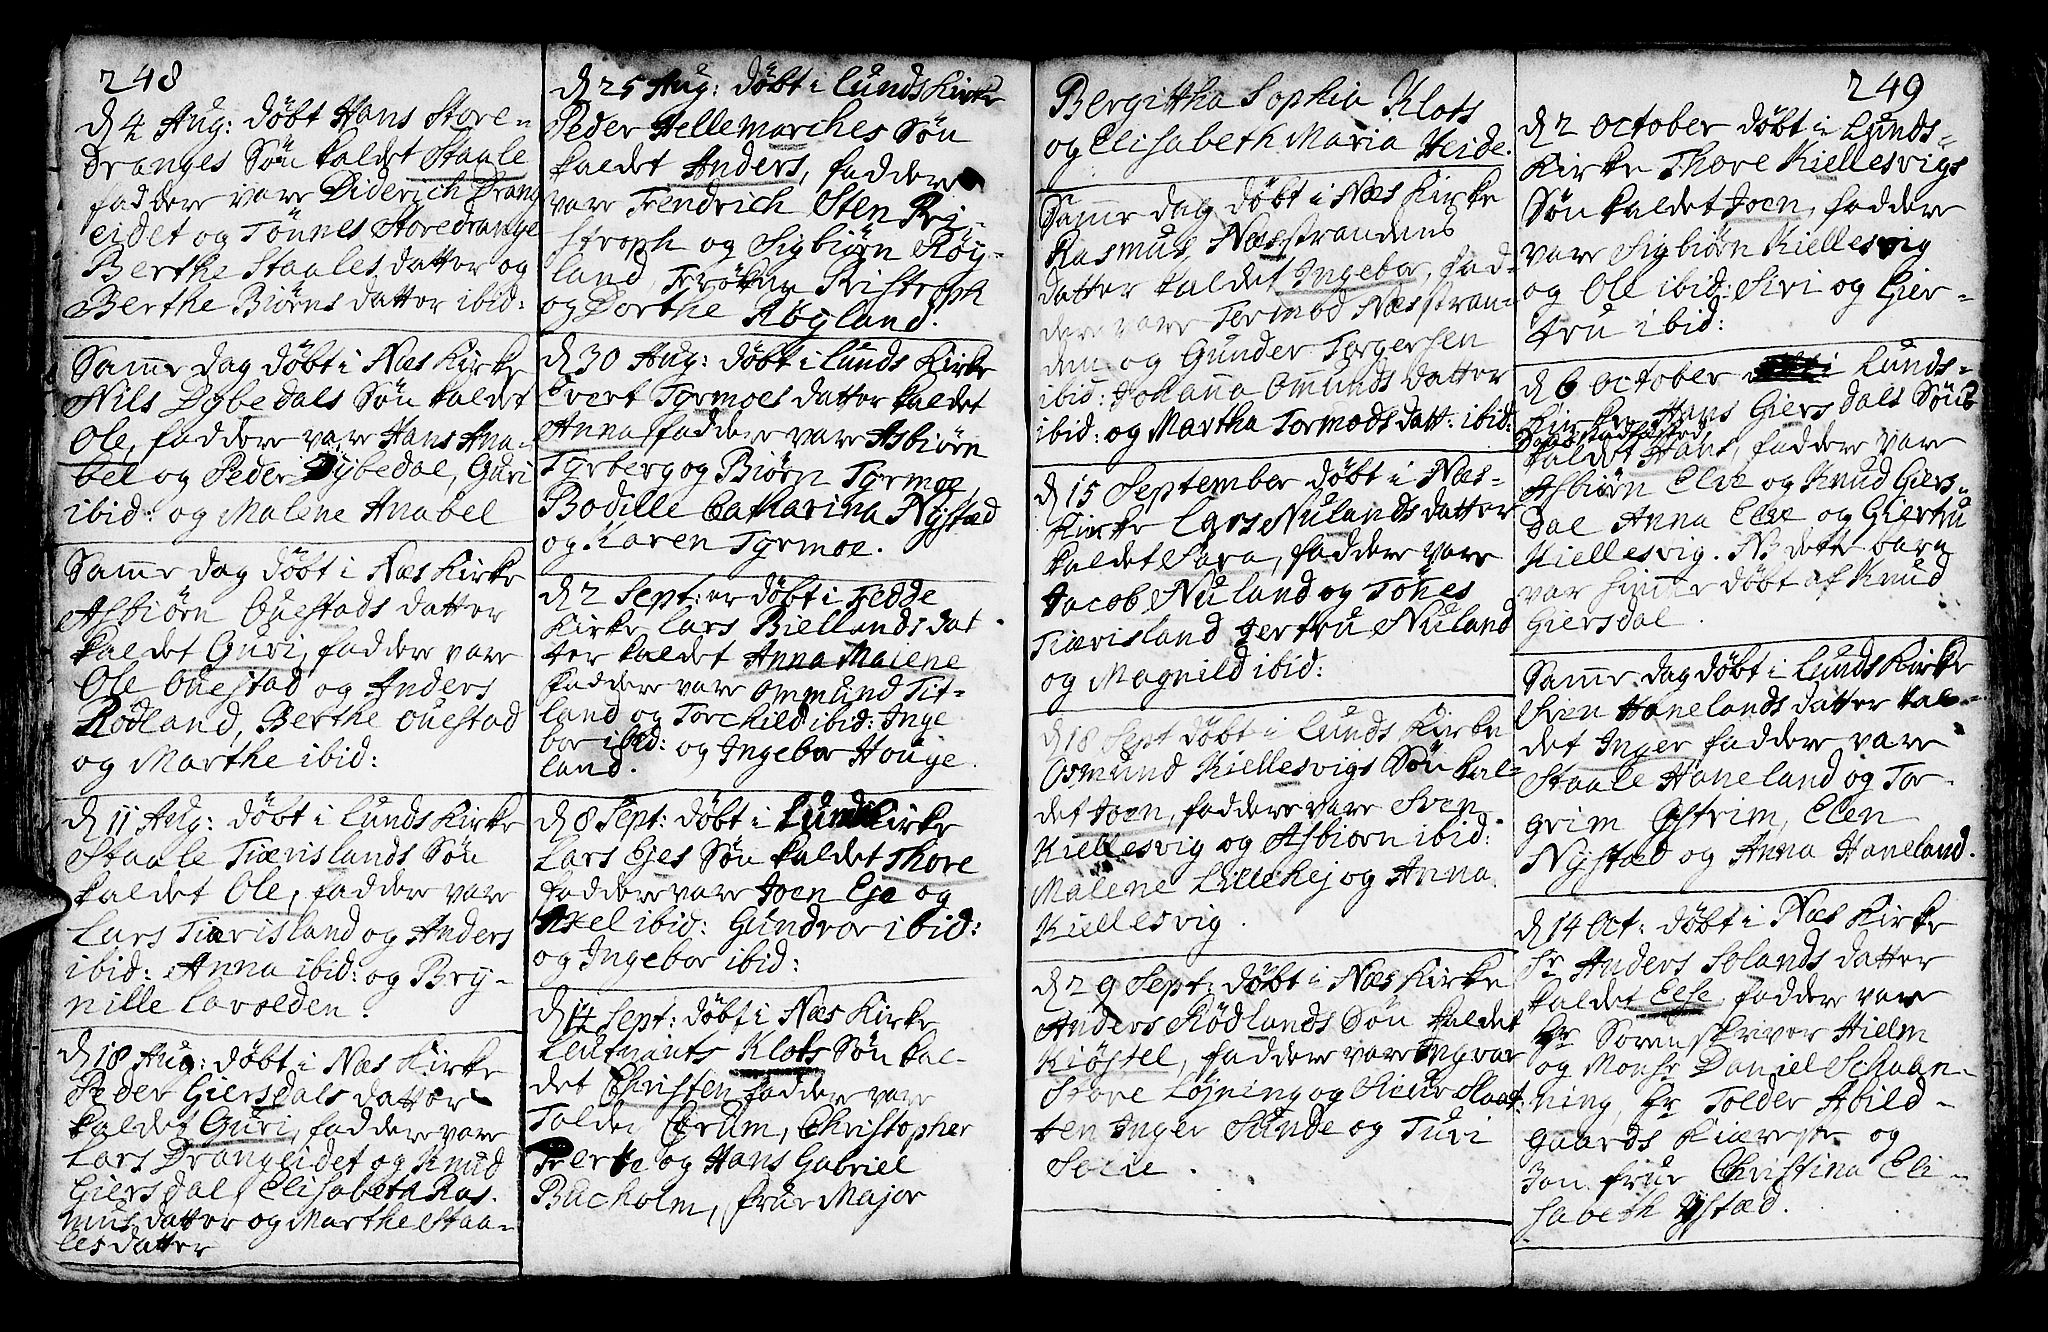 248
d 4 Aug: døbt Hans Store-
dranges Søn kaldet Staale
faddere vare Diderich Drang
eidet og Tønnes Storedrange
Berthe Staales datter og
Berthe Biørns datter ibid:
Samme dag døbt i Næs Kirke
Nils Dybedals Søn kaldet
Ole, faddere vare Hans Ana-
bel og Peder Dybedal, Guri
ibid: og Malene Anabel
Samme dag døbt i Næs Kirke
Asbiørn Ouestads datter
kaldet Guri, faddere vare
Ole Ouestad og Anders
Rødland, Berthe Ouestad
og Marthe ibid:
d 11 Aug: døbt i Lunds Kirke
Staale Tiærislands Søn
kaldet Ole, faddere vare
Lars Tiærisland og Anders
ibid: Anna ibid: og Bry-
nille Lavolden.
d 18 Aug: døbt i Næs Kirke
Peder Giersdals datter
kaldet Guri, faddere vare
Lars Drangeidet og Knud
Giersdal, Elisabeth Ras-
mus datter og Marthe Staa-
les datter
d 25 Aug: døbt i Lunds Kirke
Peder Hellemarches Søn
kaldet Anders, faddere
vare Frendrich Sten Ry-
stroph og Sigbiørn Røy-
land, Frøken Ristroph
og Dorthe Røyland.
d 30 Aug: døbt i Lunds Kirke
Evert Tyrmoes datter kaldet
Anna faddere vare Asbiørn
Tyrberg og Biørn Tyrmoe,
Bodille Catharina Nystæd
og Karen Tyrmoe.
d 2 Sept: er døbt i Fedde
Kirke Lars Biellands dat
ter kaldet Anna Malene
faddere vare Ommund Tit-
land og Torchild ibid: Inge
bor ibid: og Ingebor Houge
land.
d 8 Sept: døbt i Lunds Kirke
Lars Ejes Søn kaldet Thore
faddere vare Joen Eje og
Axel ibid: Gundvor ibid:
og Ingebor ibid:
d 14 Sept: døbt i Næs Kirke
Leutnants Klots Søn kal-
det Christen faddere vare
Tolder Crum, Christopher
og Hans Gabriel
Bucholm, frue Major
Bergittha Sophia Klots
og Elisabeth Maria Heide.
Samme dag døbt i Næs Kirke
Rasmus Næsstrandens
datter kaldet Ingebor, fad-
dere vare Tormod Næsstran-
den og Gunder Torgersen
ibid: Johanna Ommunds datter
ibid: og Martha Tormods datt: ibid:
d 15 September døbt i Næs-
Kirke Lars Nulands datter
kaldet Sara, faddere vare
Jacob Nuland og Tønes
Tiærisland Jertru Nuland
og Magnild ibid:
d 18 Sept døbt i Lunds Kirke
Osmund Kiellesvigs Søn kal-
det Joen, faddere vare Sven
Kiellesvig og Asbiørn ibid:
Malene Lillehej og Anna
Kiellesvig.
d 29 Sept: døbt i Næs Kirke
Anders Rødlands Søn kaldet
Kiøstel, faddere vare Ingvar
Store Løjning og Sivert Slaat
ten Inger Sunde og Turi
Serie.
249
d 2 October døbt i Lunds-
Kirke Thore Kiellesvigs
Søn kaldet Joen, faddere
vare Sigbiørn Kiellesvig
og Ole ibid: Siri og Gier-
tru ibid:
d 6 October i Lunds-
Kirke Hans Giersdals Søns
kaldet Hans, faddere vare
Asbiørn Elve og Knud Giers-
dal Anna Elve og Giertru
Kiellesvig. NB dette barn
var hiemme døbt af Knud
Giersdal.
Samme dag døbt i Lunds Kirke
Sven Hanelands datter kal-
det Inger faddere vare
Staale Haneland og Tor-
grim Østrim, Elen
Nystæd og Anna Haneland.
d 14 Oct: døbt i Næs Kirke
Sr Anders Solands datter
kaldet Else, faddere vare
Hr Sorenskriver Hielm
og Monsr Daniel Schaan-
ning, Hr Tolder Abild-
gaards Kiæreste og
Jomfrue Christina Eli-
sabeth Ystæd.